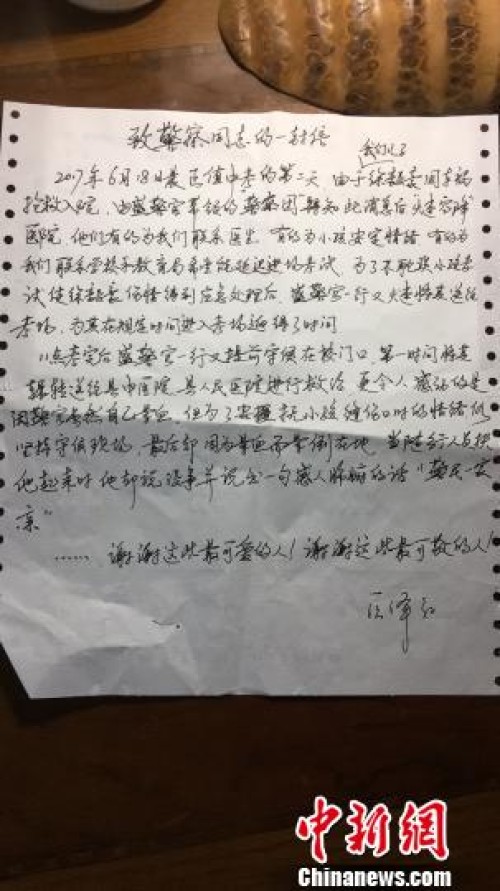 致警察同志的一封信
我们儿子
2017年6月18日是区值中考的第二天,由于徐超豪因车祸
抢救入院,由盛警官军领的警察团得知此消息后火速前往
医院,他们有的为我们联系医生,有的为小孩安定情绪,有的为
我们联系学校和教育局希望能延迟进场考试,为了不耽误小孩考
试使徐超豪伤情得到应急处理后,盛警官一行又火速将其送往
考场,为其在规定时间进入考场赢得了时间
11点考完后盛警官一行又提前守候在校门口,第一时间将其
辗转送往县中医院,县人民医院进行救治,更令人感动的是
因警官虽然自己晕血,但为了安抚小孩缝伤口时的情绪仍
坚持守候现场,最后却因为晕血而晕倒在地,当随行人员扶
他起来时他却说没事并说出一句感人肺腑的话“警民一家
亲”
……谢谢这些最可爱的人!谢谢这些最可敬的人!
中新网
Chinanews.com